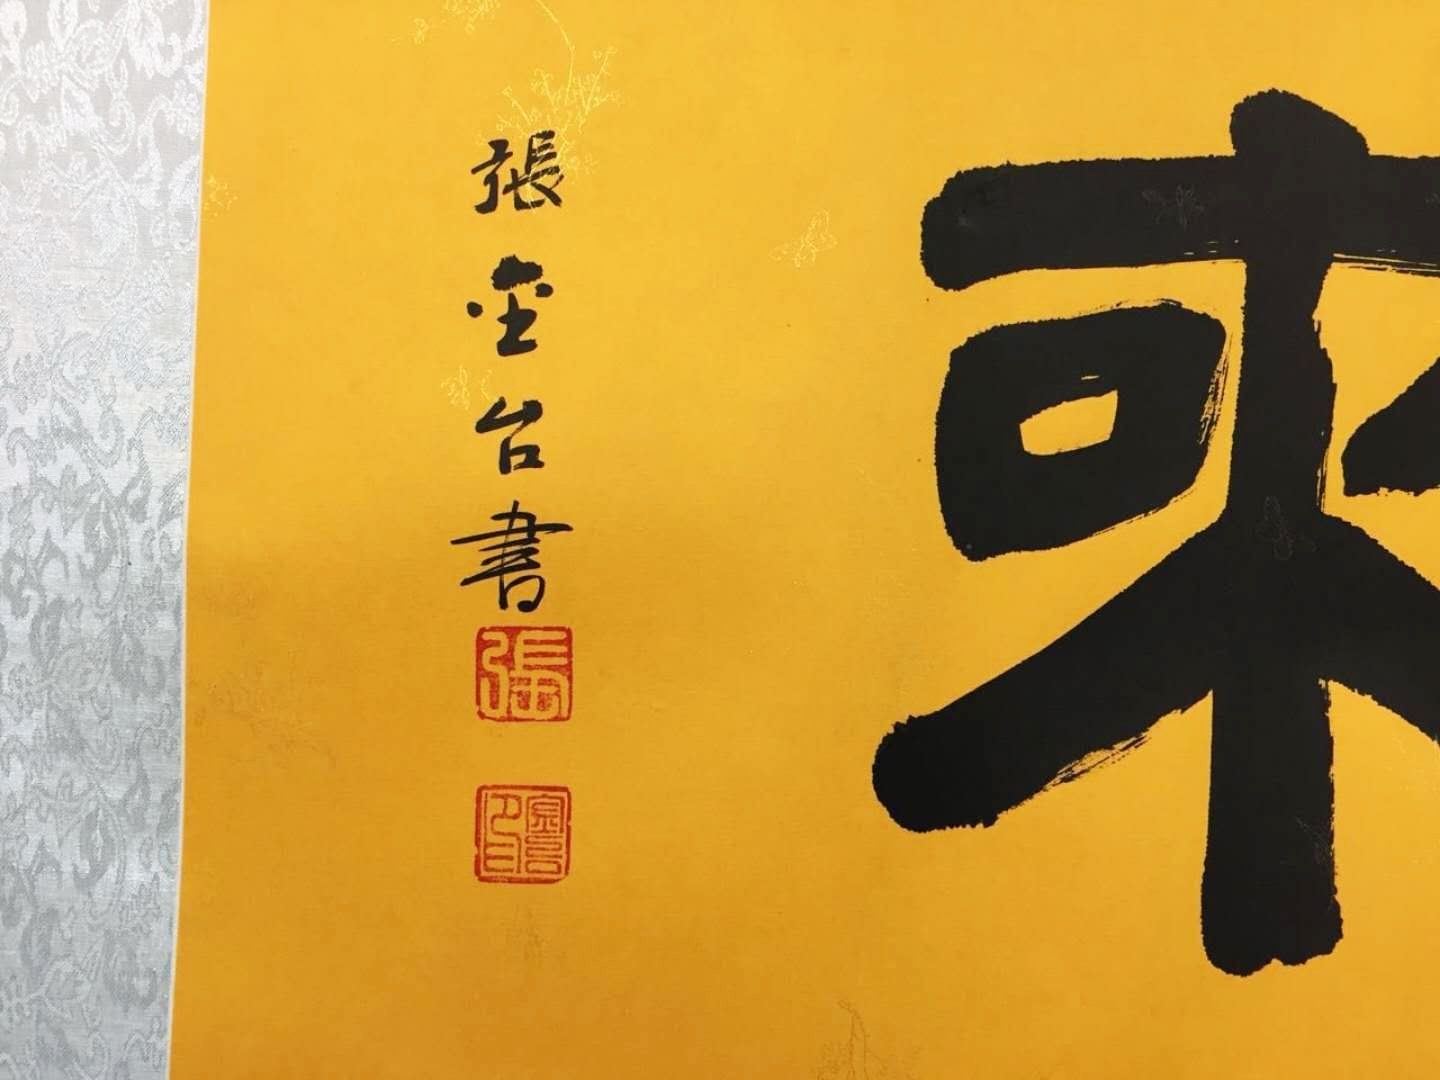 來
張金台書
張